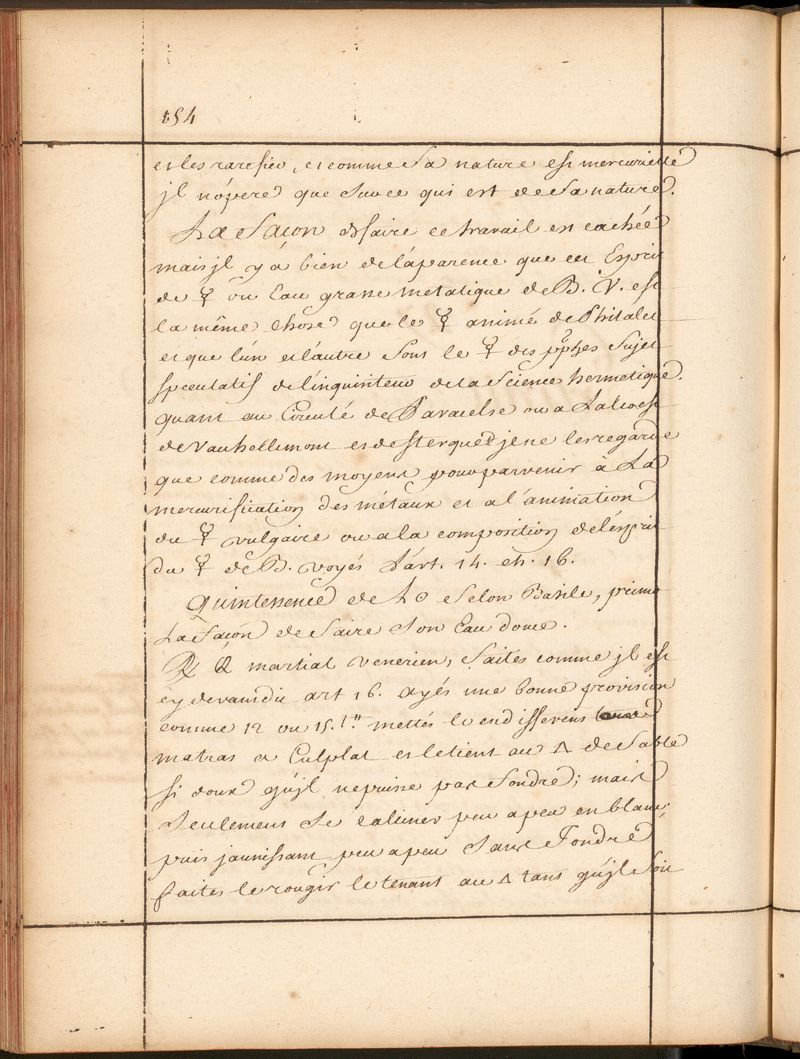 154
et les rarefier, et comme sa nature est mercurielle
jl n'opere que sur ce qui est de sa nature.
La facon de faire ce travail est cachée
mais jl y a bien de l'aparence que cet Esprit
de ☿ ou Eau grasse metalique de B. V. est
la même chose que le ☿ animé de Philalet
et que l'un et l'autre sont le ☿ des pphes sujet
speculatif de l'inquisiteur de la Science hermetique.
quant au Circulé de Paracelse ou a Lalcaest
de Vanhellemont et de je ne les regarde
que comme des moyens pour parvenir à La
mercurification des métaux et a l'animation
du ☿ vulgaire ou a la composition de l'esprit
du ☿ de B. voyés L'art. 14. ch. 16.
Quintessence de L'☉ selon Basile, primo
La façon de faire son Eau douce.
martial venerien, faités comme jl est
cy devant dit art 16. ayés une bonne provision
comme 12 ou 15. mettés le en differens
matras a Culplat et le tient au △ de sable
si doux qu'jl ne puisse pas fondre; mais
seulement se calciner peu a peu en blanc;
puis jaunissant peu a peu sans Fondre
faites le rougir le tenant au △ tant qu'jl soit